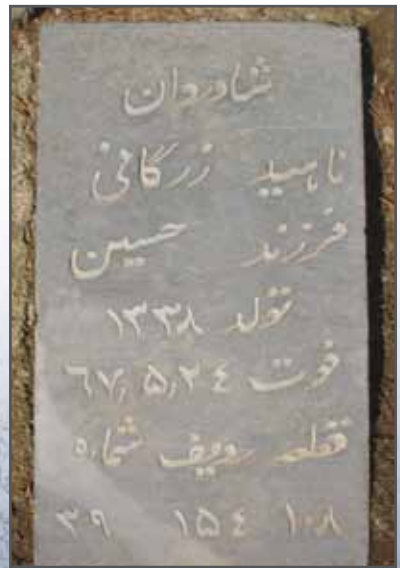 شادروان
ناهید زرگانی
فرزند حسین
تولد ۱۳۳۸
فوت ٦٧,٥,٢٤
قطعه ردیف شماره
۱۰۸ ۱۵٤ ۳۹